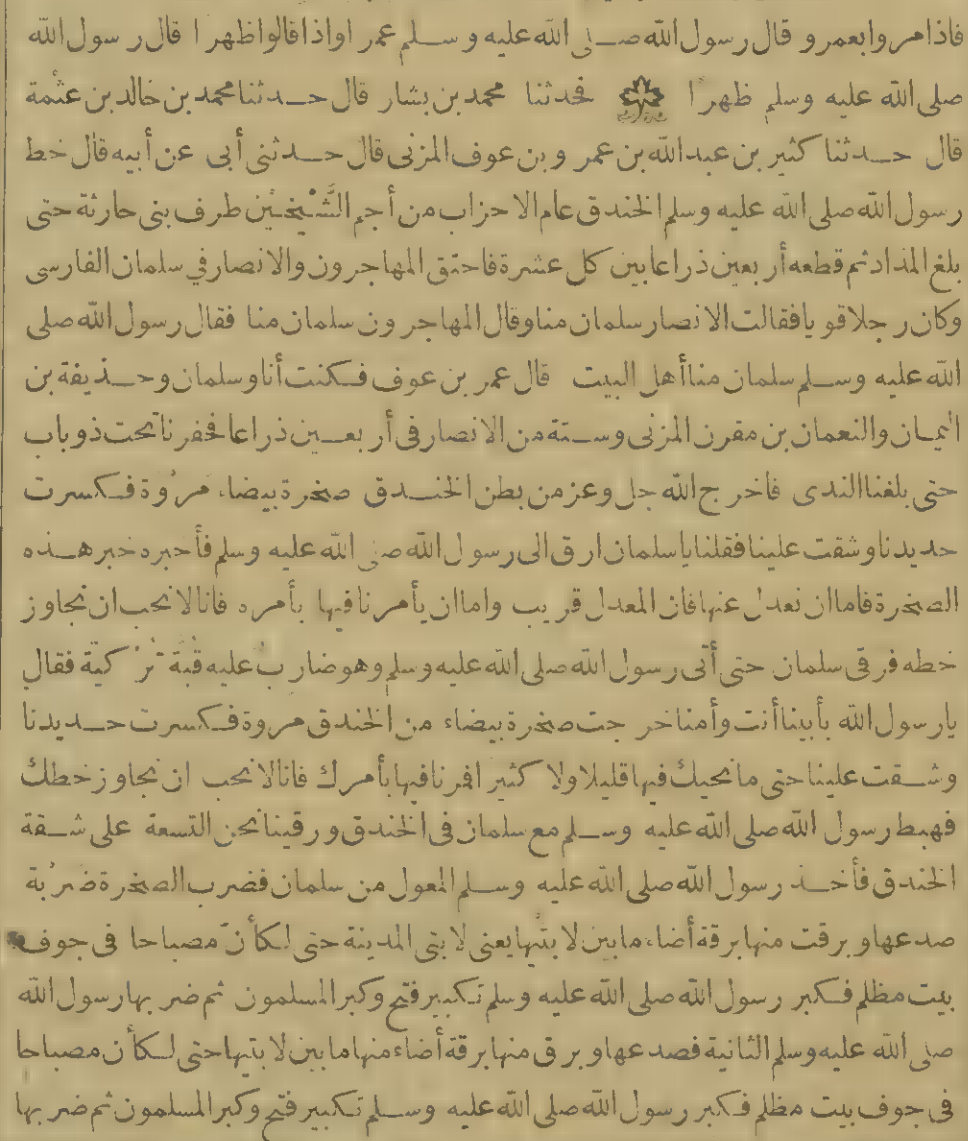 فاذا مروا بعمرو قال رسول الله صلى الله عليه وسلم عمرا واذا قالوا ظهرا قال رسول الله
صلى الله عليه وسلم ظهرا فحدثنا محمد بن بشار قال حدثنا محمد بن خالد بن عثمة
قال حدثنا كثير بن عبد الله بن عمر وبن عوف المزنى قال حدثنى أبى عن أبيه قال خط
رسول الله صلى الله عليه وسلم الخندق عام الاحزاب من أجم الشَّيْخين طرف بنى حارثة حتى
بلغ المذاد ثم قطعه أربعين ذراعا بين كل عشرة فاحتق المهاجرون والانصار في سلمان الفارسى
وكان رجلا قويا فقالت الانصار سلمان منا وقال المهاجرون سلمان منا فقال رسول الله صلى
الله عليه وسلم سلمان منا أهل البيت قال عمر بن عوف فكنت أنا وسلمان وحذيفة بن
اليمان والنعمان بن مقرن المزنى وستة من الانصار فى أربعين ذراعا فحفرنا تحت ذوباب
حتى بلغنا الندى فاخرج الله جل وعز من بطن الخندق صخرة بيضاء مرْوة فكسرت
حديدنا وشقت علينا فقلنا يا سلمان ارق الى رسول الله صلى الله عليه وسلم فأخبره خبر هذه
الصخرة فاما ان نعدل عنها فان المعدل قريب واما ان يأمرنا فيها بأمره فانا لا نحب ان نجاوز
خطه فرقى سلمان حتى أتى رسول الله صلى الله عليه وسلم وهو ضاربٌ عليه قُبَّة تُرْكية فقال
يارسول الله بأبينا أنت وأمنا خرجت صخرة بيضاء من الخندق مروة فكسرت حديدنا
وشقت علينا حتى ما نحيك فيها قليلا ولا كثيرا فمرنا فيها بأمرك فانا لا نحب ان نجاوز خطك
فهبط رسول الله صلى الله عليه وسلم مع سلمان فى الخندق ورقينا نحن التسعة على شقة
الخندق فأخذ رسول الله صلى الله عليه وسلم المعول من سلمان فضرب الصخرة ضرْبة
صدعها وبرقت منها برقة أضاء ما بين لابتَيها يعنى لابتى المدينة حتى لكأنّ مصباحا فى جوف
بيت مظلم فكبر رسول الله صلى الله عليه وسلم تكبير فتح وكبر المسلمون ثم ضربها رسول الله
صلى الله عليه وسلم الثانية فصدعها وبرق منها برقة أضاء منها ما بين لابتيها حتى لكأن مصباحا
فى جوف بيت مظلم فكبر رسول الله صلى الله عليه وسلم تكبير فتح وكبر المسلمون ثم ضربها